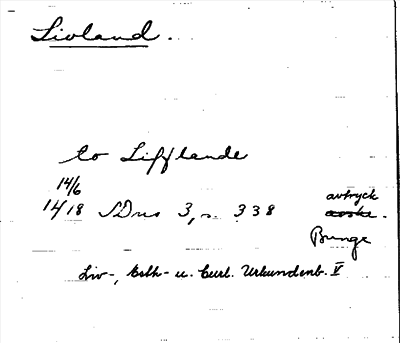 Livland.
to Lifflande
14/6
1418 SDns 3, s. 338 avtryck
avskr.
Bunge
Liv-, Esth- u. Curl. Urkundenb. V